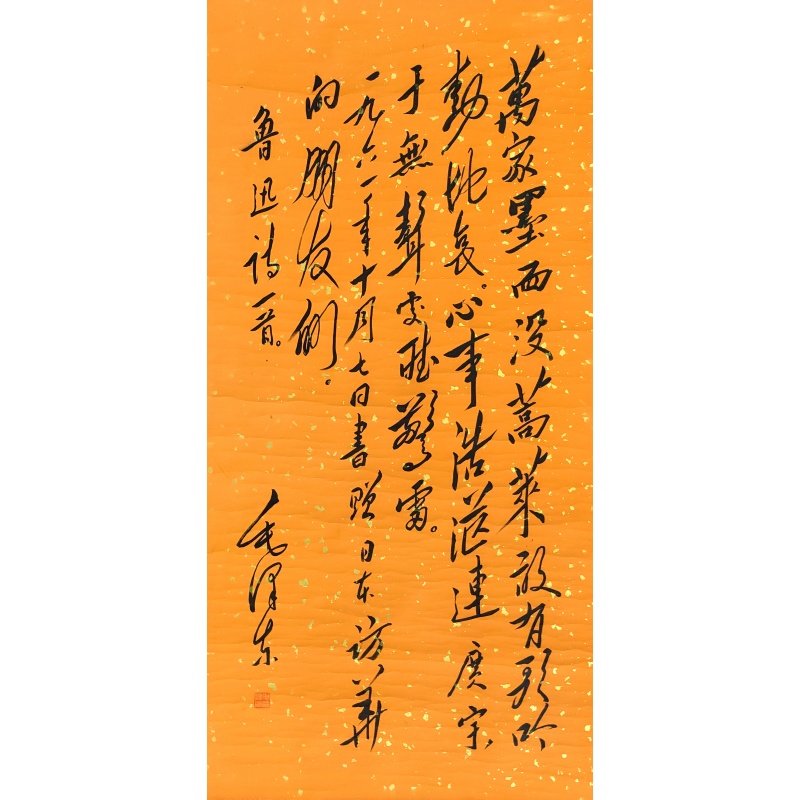 萬家墨面没蒿萊敢有歌吟
動地哀。心事浩茫連廣宇
于無聲處聽驚雷。
一九六一年十月七日書贈日本訪華
的朋友們。
魯迅詩一首。
毛澤东